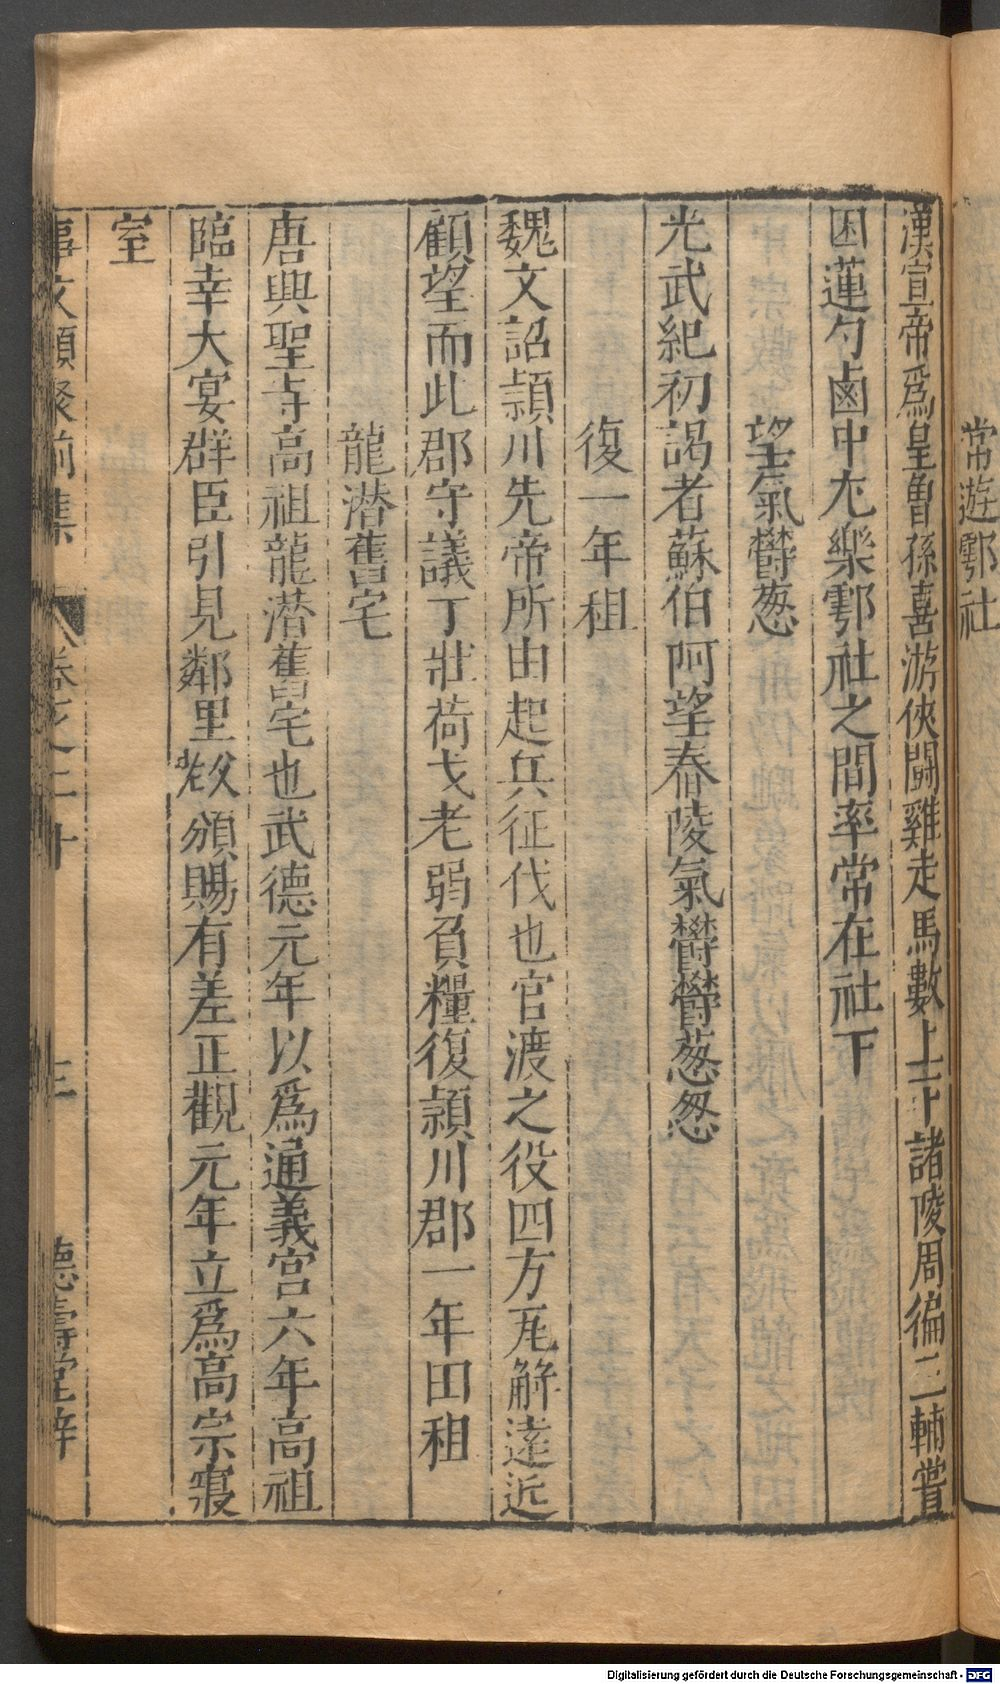 常遊鄠社
漢宣帝爲皇曾孫喜游俠鬪雞走馬數上下諸陵周徧三輔嘗
困蓮勺鹵中尤樂鄠社之間率常在社下
望氣鬱葱
光武紀初謁者蘇伯阿望舂陵氣鬱鬱葱葱
復一年租
魏文詔頴川先帝所由起兵征伐也官渡之役四方瓦解逺近
顧望而此郡守議丁壯荷戈老弱負糧復頴川郡一年田租
龍潜舊宅
唐興聖寺高祖龍潜舊宅也武德元年以爲通義宮六年高祖
臨幸大宴群臣引見鄰里父老頒賜有差正觀元年立爲高宗寢
室
事文類聚前集 卷之二十 三 德壽堂梓
Digitalisierung gefördert durch die Deutsche Forschungsgemeinschaft - DFG